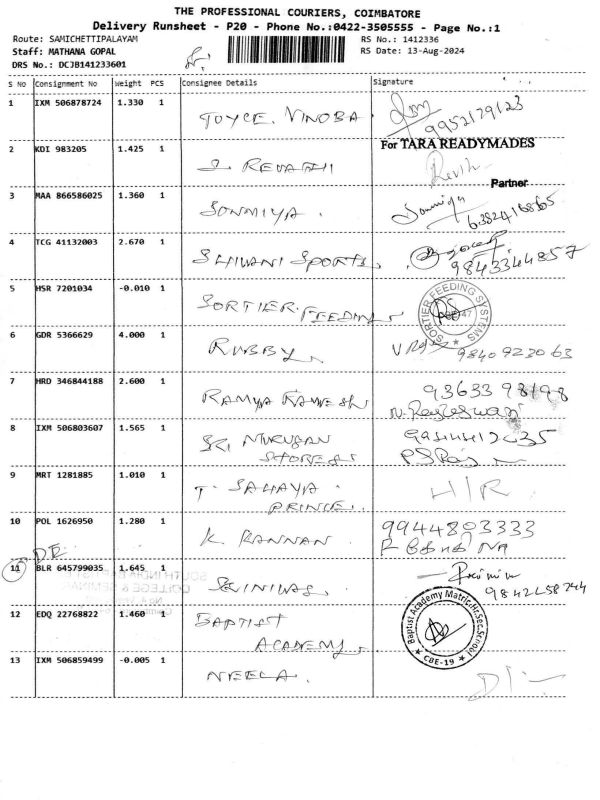 THE PROFESSIONAL COURIERS, COIMBATORE
Delivery Runsheet - P20 - Phone No.:0422-3505555 - Page No.:1
Route: SAMICHETTIPALAYAM
RS No.: 1412336
Staff: MATHANA GOPAL
RS Date: 13-Aug-2024
DRS No.: DCJB141233601
S No Consignment No Weight PCS Consignee Details Signature
1 IXM 506878724 1.330 1 JOYCE. VINOBA
9952179123
2 KDI 983205 1.425 1 REVATHI For TARA READYMADES
Partner
3 MAA 866586025 1.360 1 SONMIYA.
6382416865
4 TCG 41132003 2.670 1 SHIVANI SPORTS
9843344857
5 HSR 7201034 -0.010 1 SORTIER FEEDING
SORTIER FEEDING SYSTEMS
6 GDR 5366629 4.000 1 RUBBY
9840923063
7 HRD 346844188 2.600 1 RAMYA RAMESH
93633 98198
N. Rajeswari
8 IXM 506803607 1.565 1 SRI MURUGAN
STORES
9 MRT 1281885 1.010 1 T. SAHAYA
PRINCE H/R
10 POL 1626950 1.280 1 K. KANNAN 9944803333
D.R
11 BLR 645799035 1.645 1 SRINIVAS
12 EDQ 22768822 1.460 1 BAPTIST
ACADEMY
Baptist Academy Matric.Hr.Sec.School
CBE-19
13 IXM 506859499 -0.005 1 NEELA.